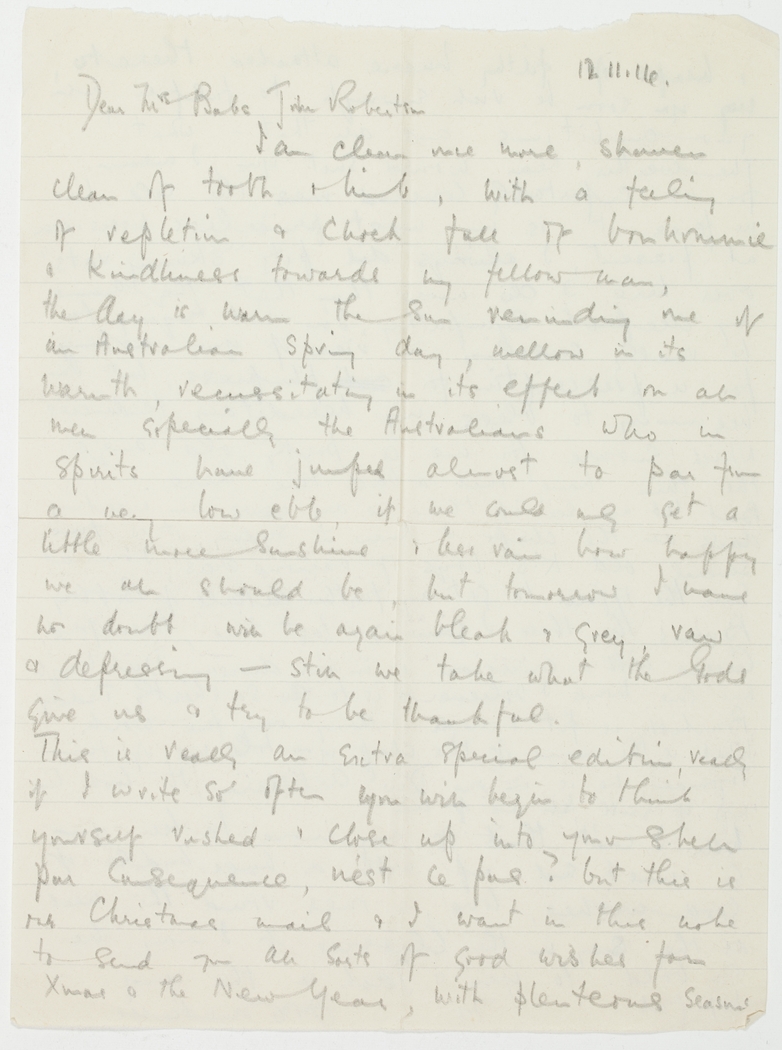 12.11.16.
Dear Mrs Babs John Robertson
I am clean once more, shaven
clean of tooth & limb, with a feeling
of repletion & chock full of bonhommie
& kindliness towards my fellow man,
the day is warm the Sun reminding me of
an Australian Spring day, mellow in its
warmth, recussitating in its effect on all
men especially the Australians who in
spirits have jumped almost to par from
a very low ebb, if we could only get a
little more Sunshine & less rain how happy
we all should be, but tomorrow I have
no doubt will be again bleak & grey, raw
& depressing — still we take what the Gods
give us & try to be thankful.
This is really an extra special edition, really
if I write so often you will begin to think
yourself rushed & close up into your shell
par consequence, n'est ce pas? but this is
our Christmas mail & I want in this note
to send you all sorts of good wishes for
Xmas & the New Year, with plenteous seasons